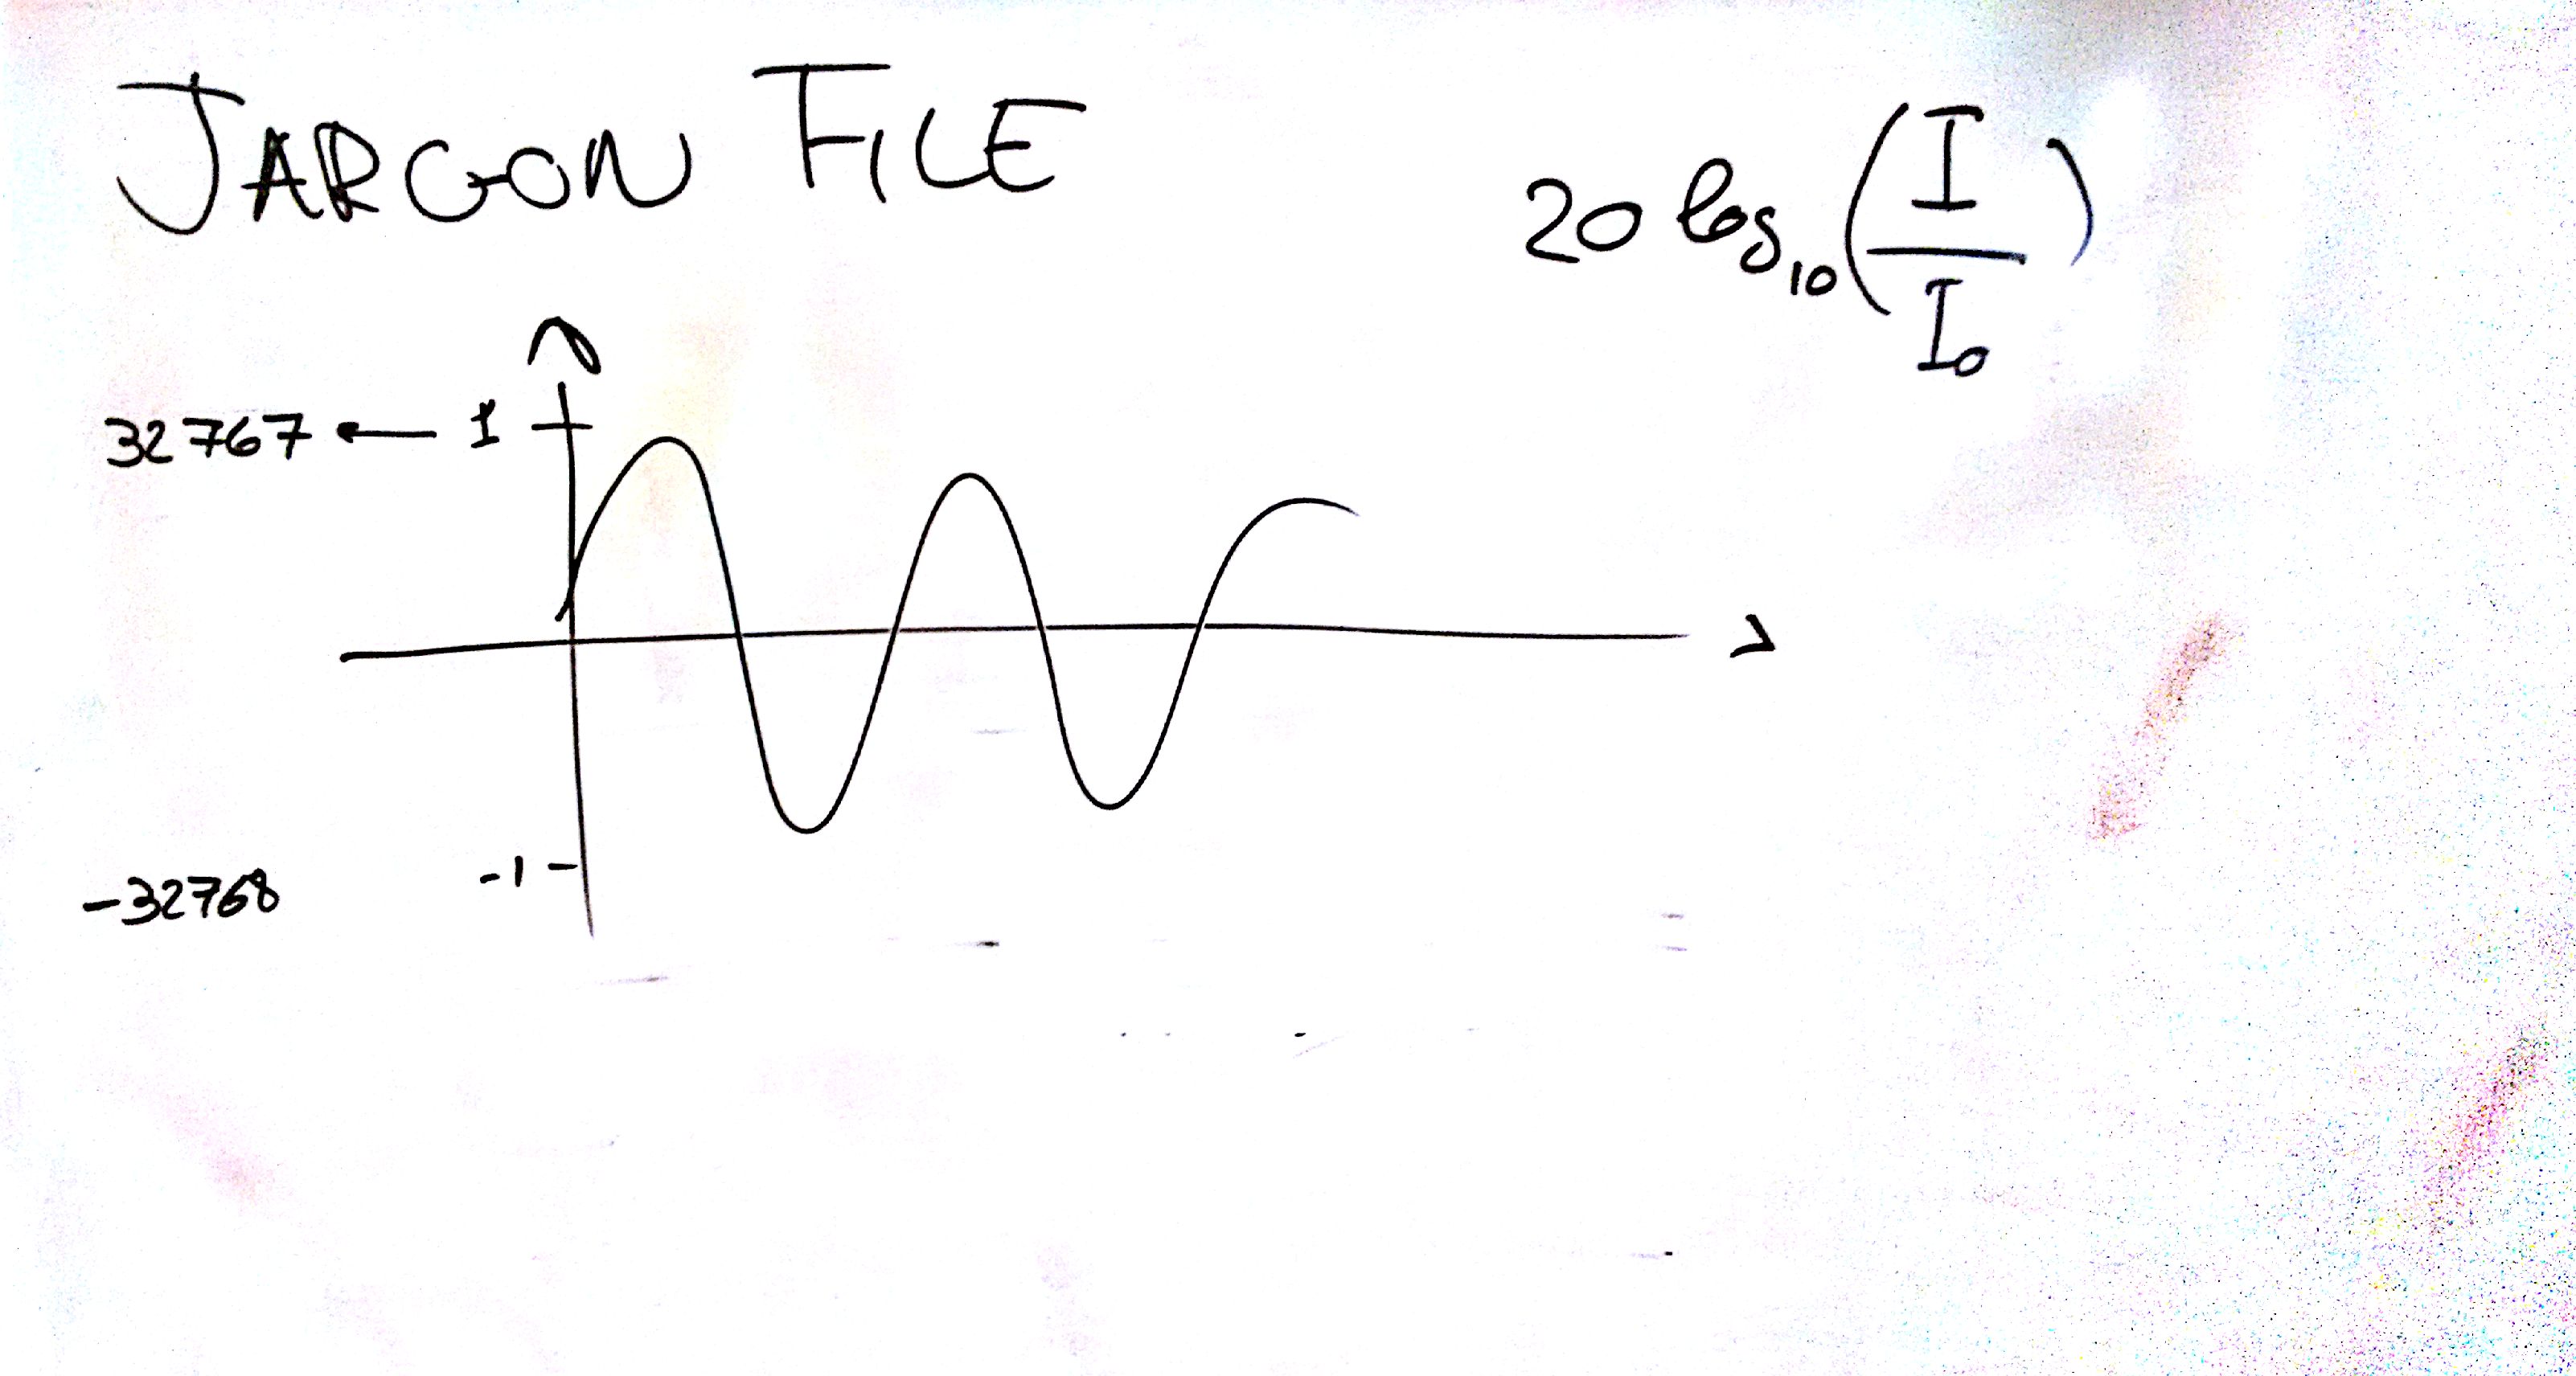 JARGON FILE
20 log₁₀(I/I₀)
32767 ← 1
-1
-32768